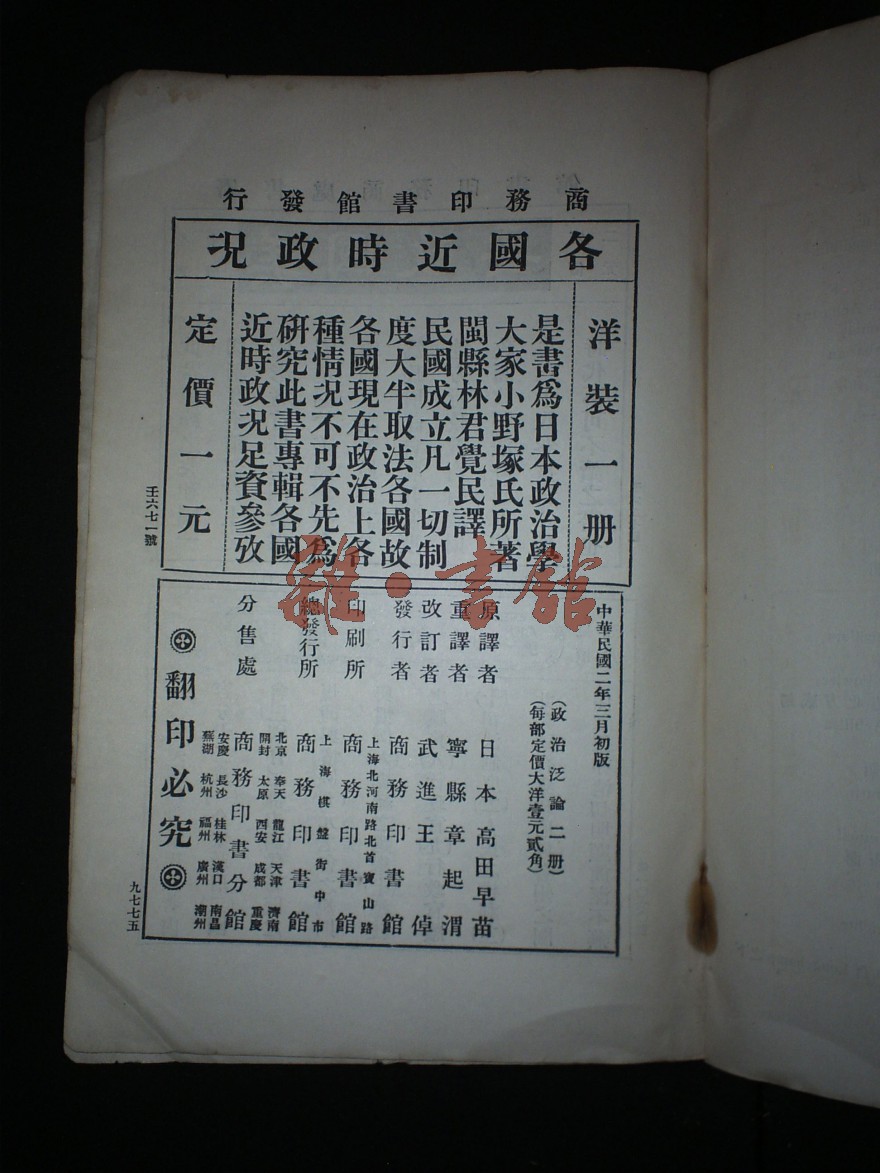 商務印書館發行
各國近時政況
洋裝一册
是書爲日本政治學
大家小野塚氏所著
閩縣林君覺民譯
民國成立凡一切制
度大半取法各國故
各國現在政治上各
種情況不可不先爲
研究此書專輯各國
近時政況足資參攷
定價一元
壬六七一號
中華民國二年三月初版
(政治泛論二册)
(每部定價大洋壹元貳角)
原譯者 日本高田早苗
重譯者 寧縣章起渭
改訂者 武進王倬
發行者 商務印書館
上海北河南路北首寶山路
印刷所 商務印書館
上海棋盤街中市
總發行所 商務印書館
北京 奉天 龍江 天津 濟南
開封 太原 西安 成都 重慶
分售處 商務印書分館
安慶 長沙 桂林 漢口 南昌
蕪湖 杭州 福州 廣州 潮州
翻印必究
九七七五
雜·書館